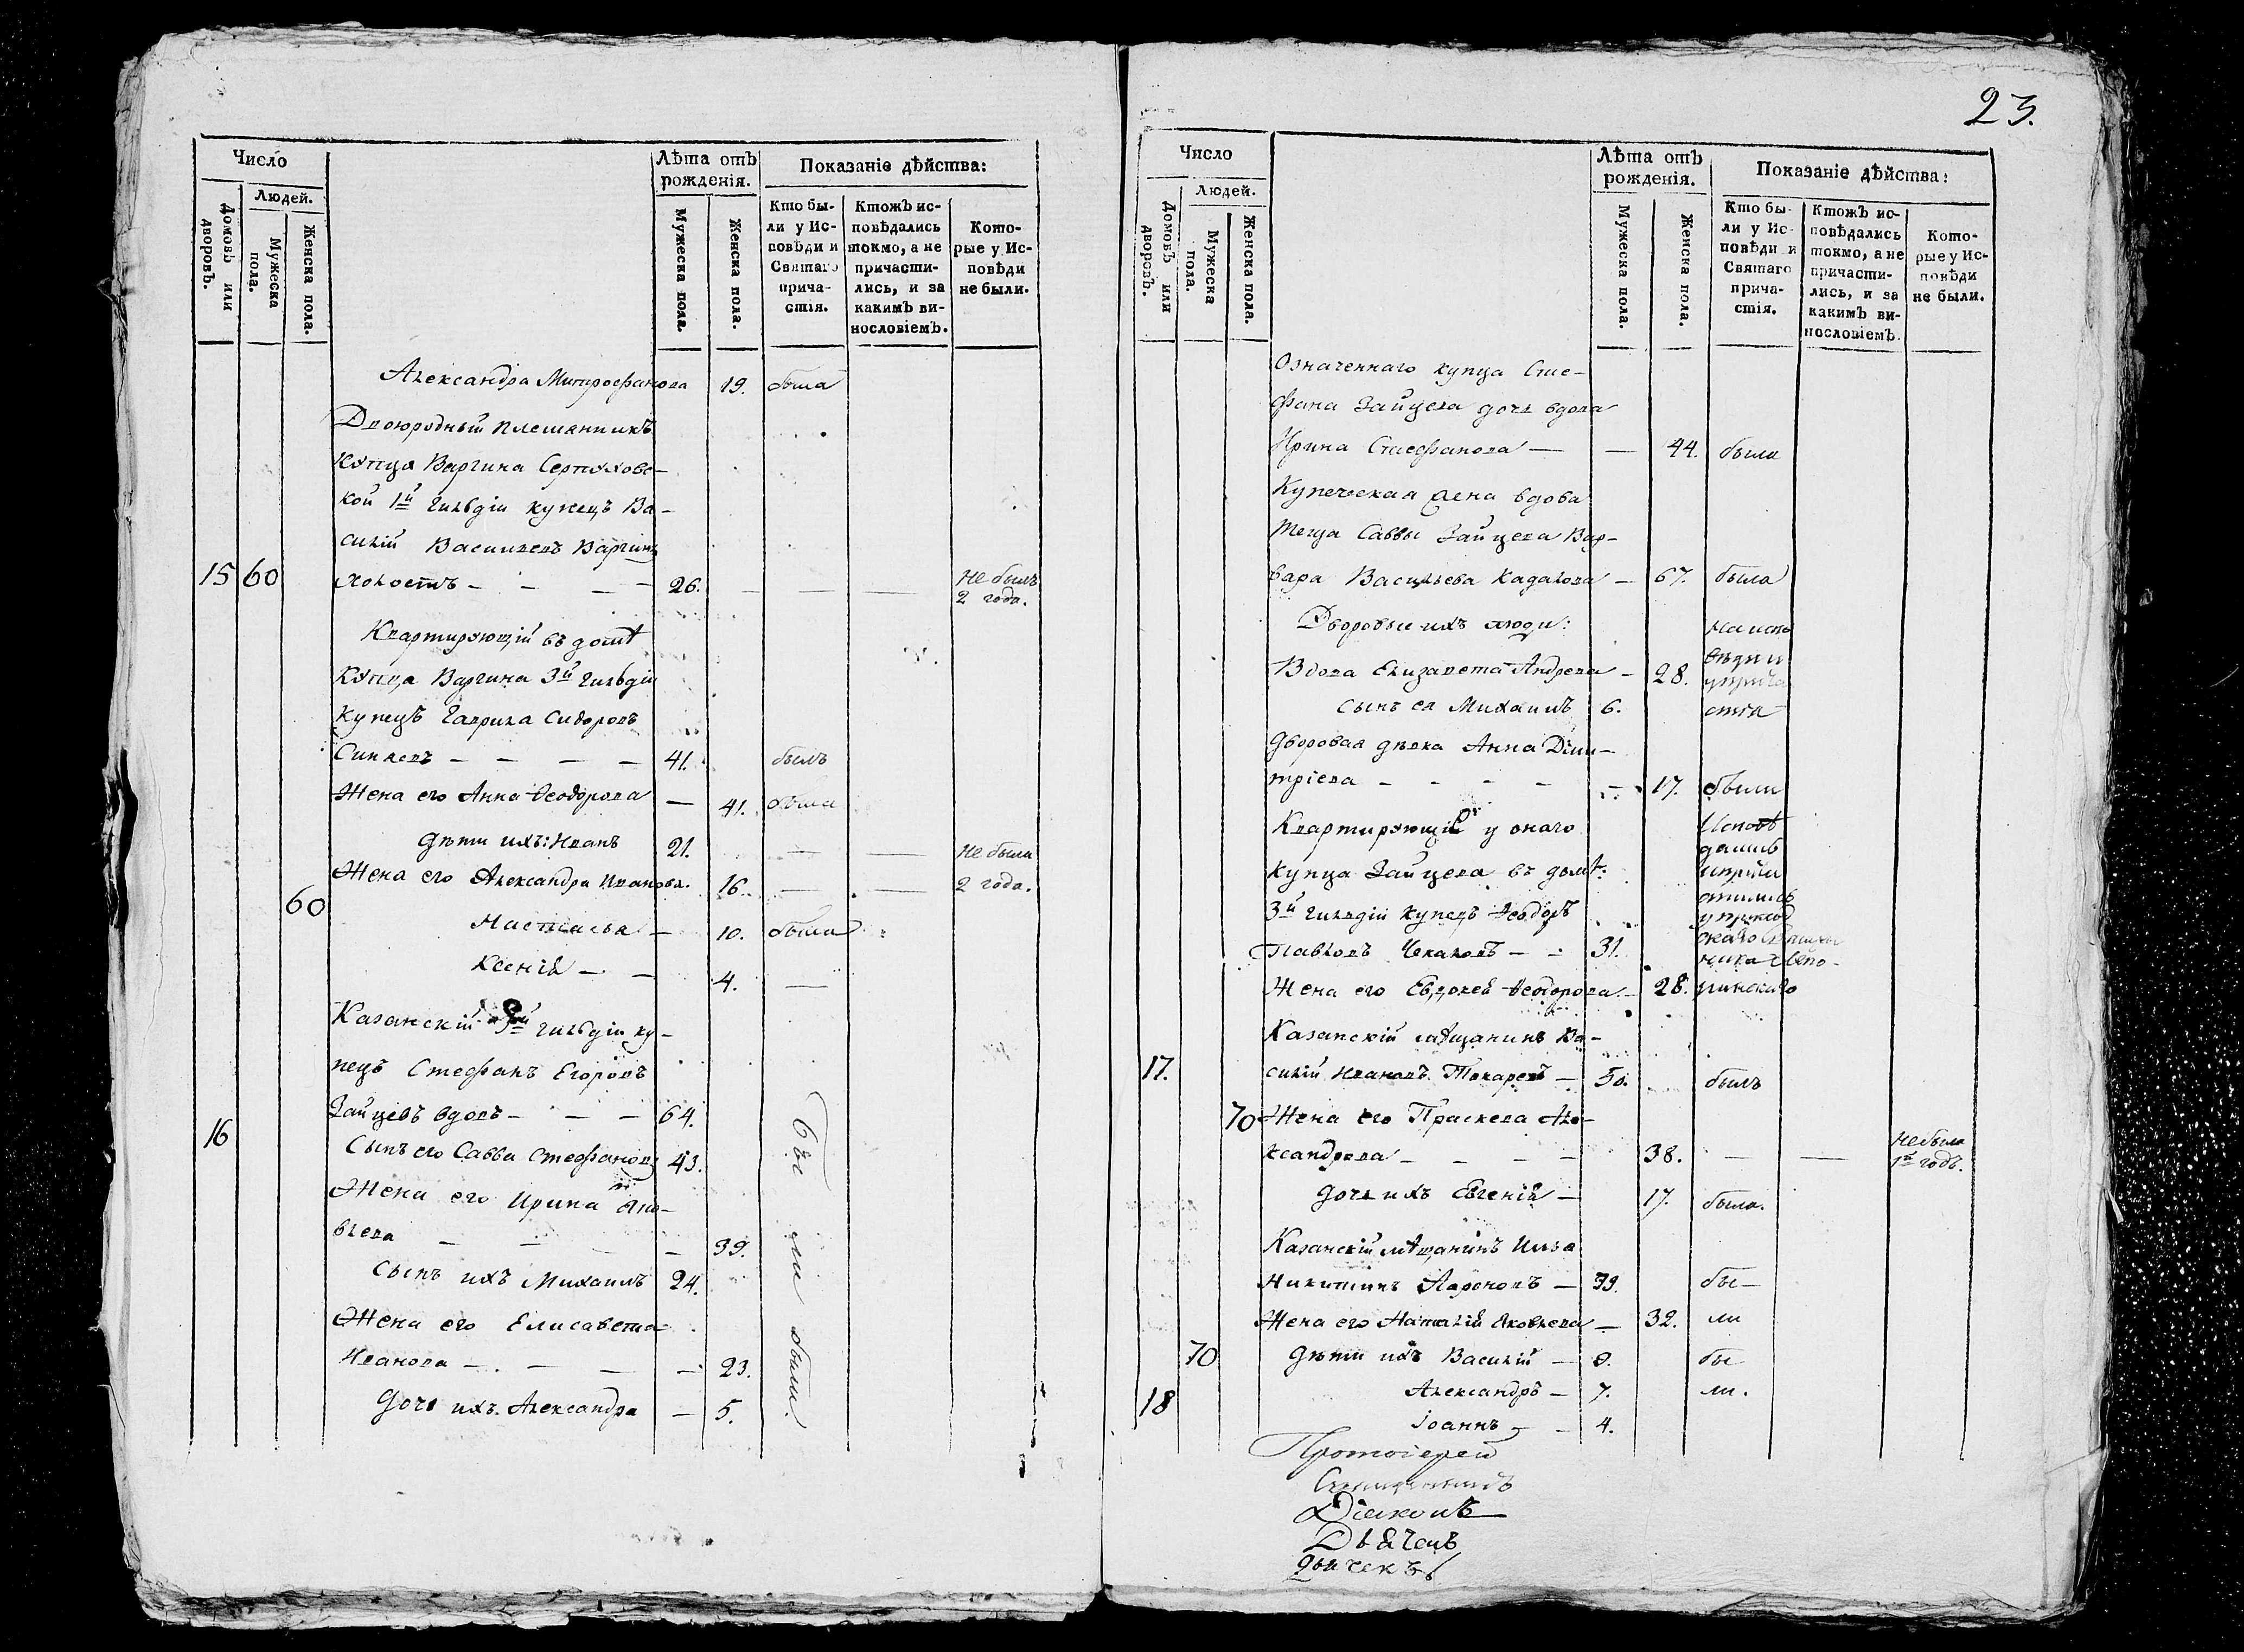 Число
Людей.
Домовъ или дворовъ.
Мужеска пола.
Женска пола.
Лѣта отъ рожденія.
Мужеска пола.
Женска пола.
Показаніе дѣйства:
Кто были у Исповѣди и Святаго причастія.
Ктожъ исповѣдались токмо, а не причастились, и за какимъ винословіемъ.
Которые у Исповѣди не были.
Александра Митрофанова 19. была
Двоюродный племянникъ
купца Варгина Серпуховс-
кой 1й гильдіи купецъ Ва-
силій Васильевъ Варгинъ
15 60 холостъ - - - - 26. - - - не былъ 2 года.
Квартирующій въ домѣ
купца Варгина 3й гильдіи
купецъ Гаврила Сидоровъ
Синяевъ - - - - 41. былъ
Жена его Анна Ѳеодорова - 41. была
дѣти ихъ: Иванъ 21. - - не были
Жена его Александра Иванова. 16. - - 2 года.
60
Настасья - 10. была
Ксенія - - 4. -
Казанскій 3й гильдіи ку-
пецъ Стефанъ Егоровъ
Зайцевъ вдовъ - - - 64.
16
Сынъ его Савва Стефановъ 43.
Жена его Ирина
вьева - - - - 39.
сынъ ихъ Михаилъ 24.
Жена его Елисавета
Иванова - - - - 23.
дочь ихъ Александра - 5.
были
23.
Число
Людей.
Домовъ или дворовъ.
Мужеска пола.
Женска пола.
Лѣта отъ рожденія.
Мужеска пола.
Женска пола.
Показаніе дѣйства:
Кто были у Исповѣди и Святаго причастія.
Ктожъ исповѣдались токмо, а не причастились, и за какимъ винословіемъ.
Которые у Исповѣди не были.
Означеннаго купца Сте-
фана Зайцева дочь вдова
Ирина Стефанова - - 44. была
Купеческая жена вдова
теща Саввы Зайцева Вар-
вара Васильева Кадалова - 67. была
Дворовые ихъ люди:
Вдова Елизавета Андреева - 28.
на испо
вѣди и
сынъ ея Михаилъ 6.
дворовая дѣвка Анна Дими-
тріева - - - - - 17. были
Квартирующіе у онаго
купца Зайцева въ домѣ:
3й гильдіи купецъ Ѳеодоръ
Павловъ Чекановъ - - 31.
Жена его Евдокея Ѳеодорова. - 28.
Казанскій мѣщанинъ Ва-
17. силій Ивановъ Токаревъ - 50. былъ
70 Жена его Праскева Але-
ксандрова - - - - 38. - - не была 1й годъ.
дочь ихъ Евгенія - 17. была.
Казанскій мѣщанинъ Илья
Никитинъ Ларіоновъ - 39. бы-
Жена его Наталія Яковлева - 32. ли
70 дѣти ихъ Василій - 9. бы
Александръ - 7. ли.
18
Іоаннъ - - 4.
Протоіерей
Священникъ
Діаконъ
Дьячекъ
дьячекъ